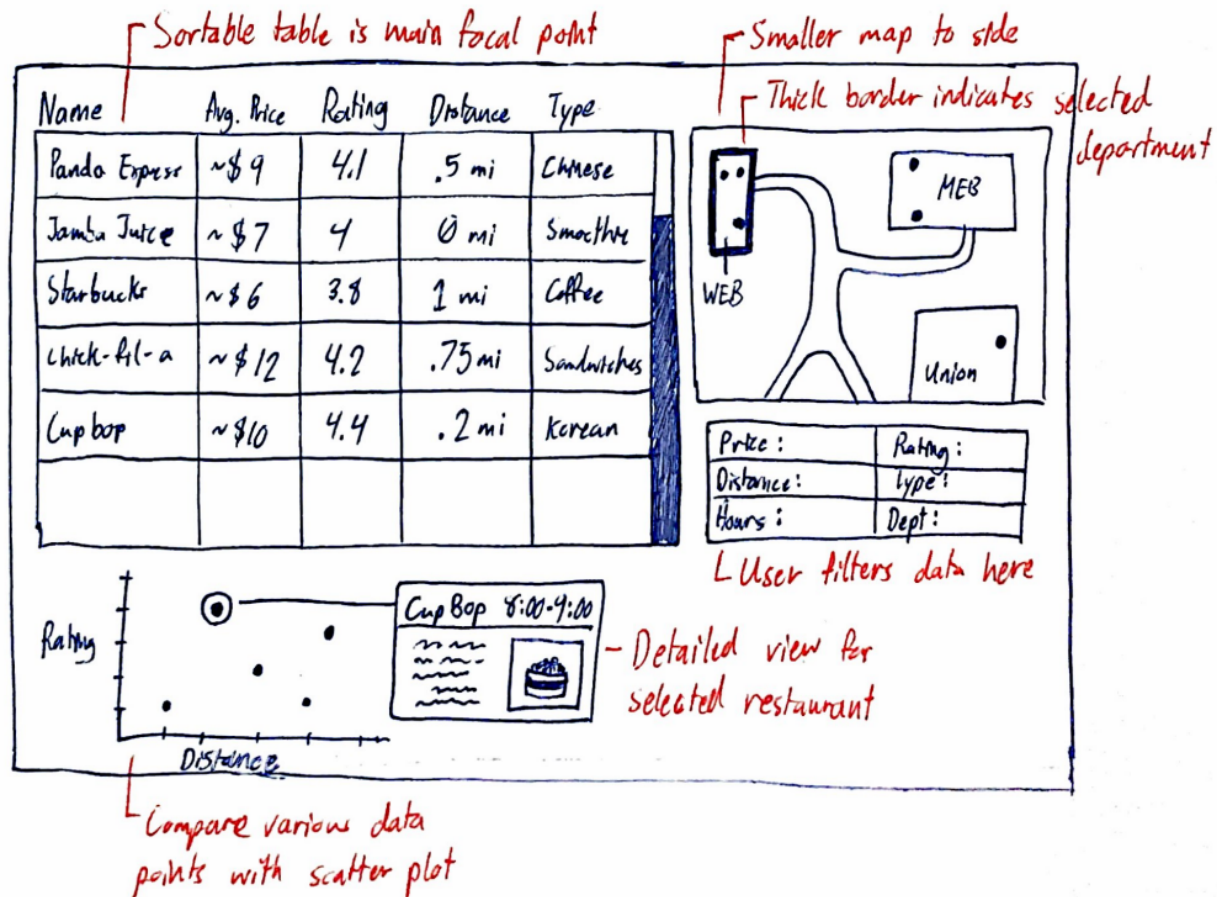 Sortable table is main focal point
Smaller map to side
Thick border indicates selected
department
Name Avg. Price Rating Distance Type
Panda Express ~$9 4.1 .5 mi Chinese
Jamba Juice ~$7 4 0 mi Smoothie
Starbucks ~$6 3.8 1 mi Coffee
Chick-fil-a ~$12 4.2 .75 mi Sandwiches
Cupbop ~$10 4.4 .2 mi Korean
MEB
WEB
Union
Price: Rating:
Distance: Type:
Hours: Dept:
User filters data here
Rating
Distance
Cup Bop 8:00-9:00
Detailed view for
selected restaurant
Compare various data
points with scatter plot